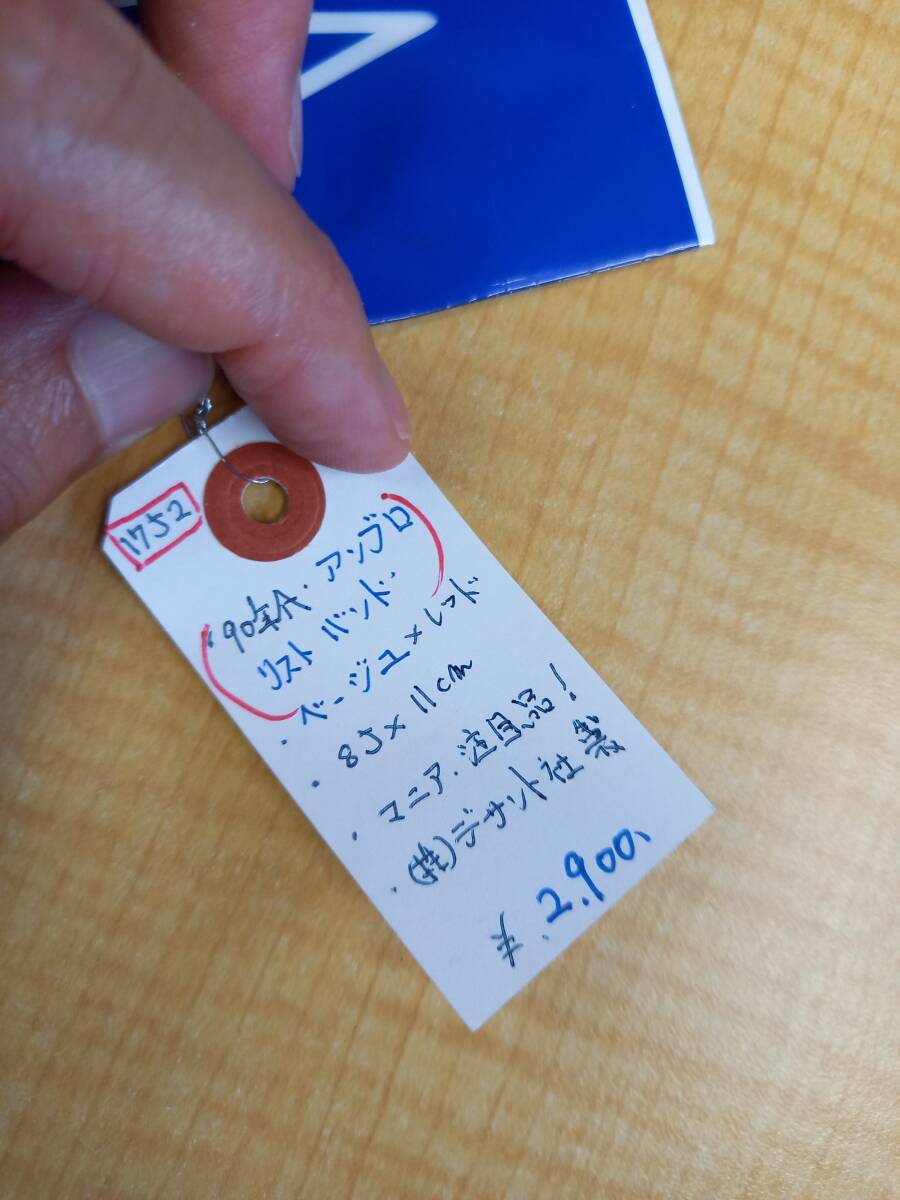 1752
・90年A・アンブロ
リストバンド
・ベージュ×レッド
・85×11cm
・マニア・注目品!
・(株)デサント社製
¥.2.900、